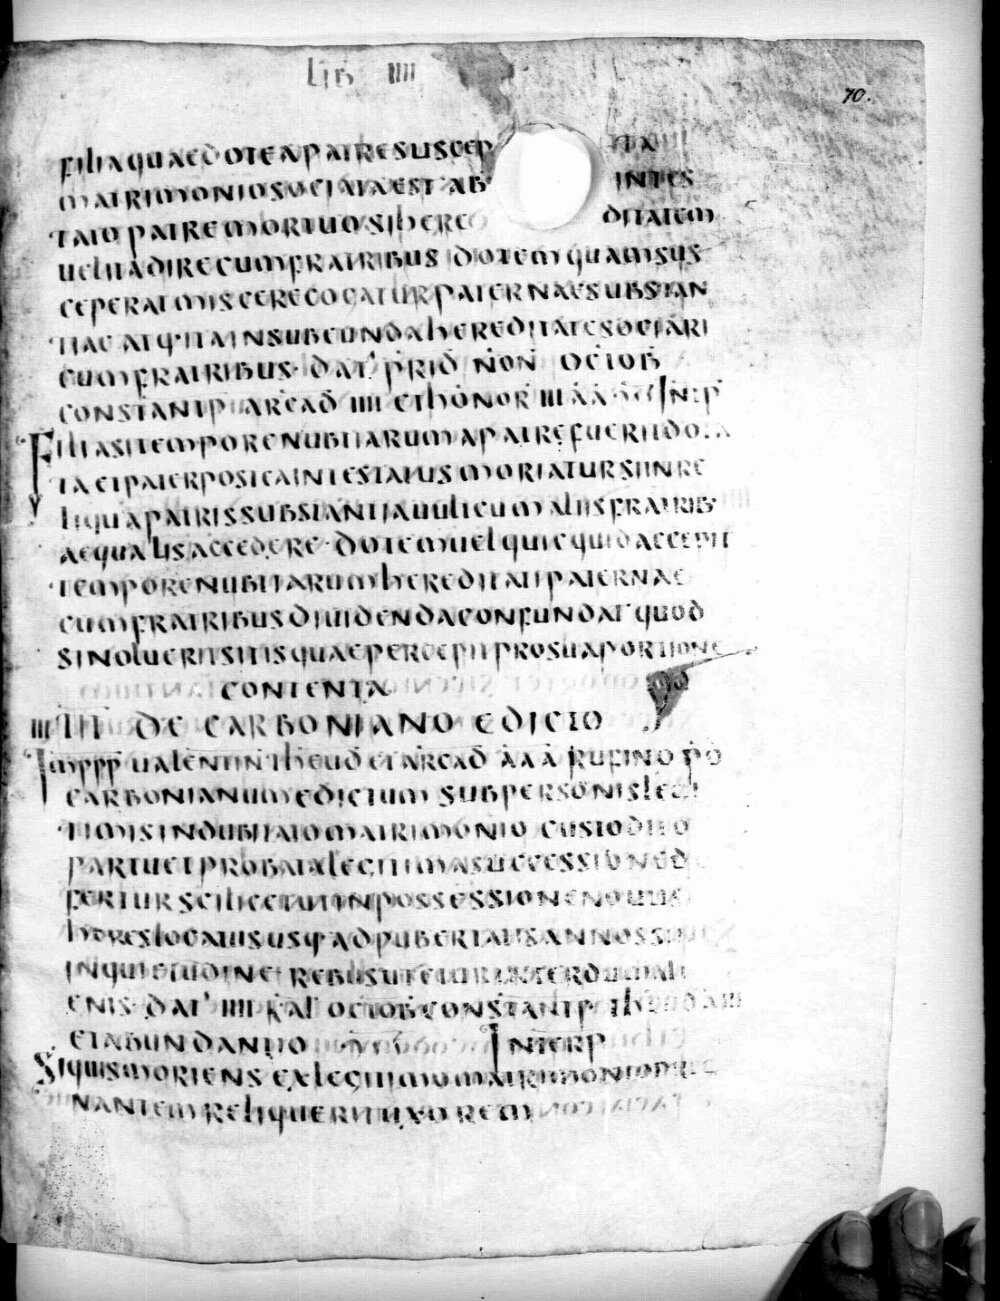 LIB IIII
70.
FILIA QUAE DOTE A PATRE SUSCEP ITA
MATRIMONIO SOCIATA EST AB INTES
TATO PATRE MORTUO SI HERE DITATEM
UELIT ADIRE CUM FRATRIBUS DOTEM QUAM SUS
CEPERAT MISCERE COGATUR PATERNAE SUBSTAN
TIAE ATQ· ITA IN SUBEUNDA HEREDITATE SOCIARI
CUM FRATRIBUS· DAT· PRID NON OCTOB
CONSTANTP ARCAD IIII ET HONOR III AA INTP
FILIA SI TEMPORE NUBTIARUM A PATRE FUERIT DOTA
TA ET PATER POSTEA INTESTATUS MORIATUR SI IN RE
LIQUA PATRIS SUBSTANTIA UULT CUM ALIIS FRATRIB·
AEQUALIS ACCEDERE· DOTEM UEL QUICQUID ACCEPIT
TEMPORE NUBTIARUM HEREDITATI PATERNAE
CUM FRATRIBUS DIUIDENDA CONFUNDAT QUOD
SI NOLUERIT SIT IS QUAE PERCEPIT PRO SUA PORTIONE
CONTENTA
III TIT DE CARBONIANO EDICTO
IMPPP UALENTIN THEUD ET ARCAD AAA RUFINO PO
CARBONIANUM EDICTUM SUB PERSONIS LEGI
TIMIS INDUBITATO MATRIMONIO CUSTODITO
PARTU ET PROBATA LEGITIMA SUCCESSIONE DE
FERTUR SCILICET UT IN POSSESSIONE NOUUS
HERES LOCATUS USQ· AD PUBERTATIS ANNOS SINE
INQUIETUDINE REBUS UTETUR INTERDUM ALI
ENIS· DAT· IIII KAL OCTOB CONSTANTP THEUD A III
ET ABUNDANTIO INTERP
SI QUIS MORIENS EX LEGITIMO MATRIMONIO PREG
NANTEM RELIQUERIT UXOREM